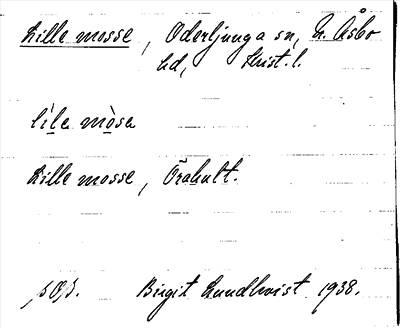 Lille mosse, Oderljunga sn, N. Åsbo
hd, Krist. l.
li̇̀le mòsa
Lille mosse, Örahult.
Birgit Lundkvist 1938.